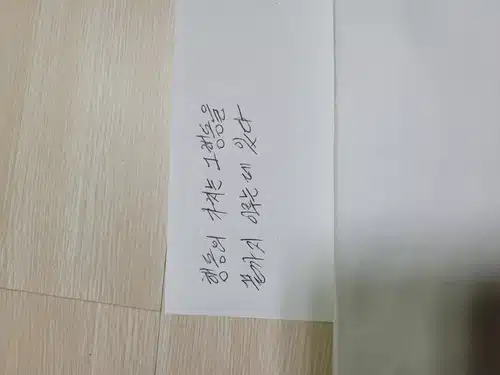 행동의 가치는 그 행동을
끝까지 이루는 데 있다